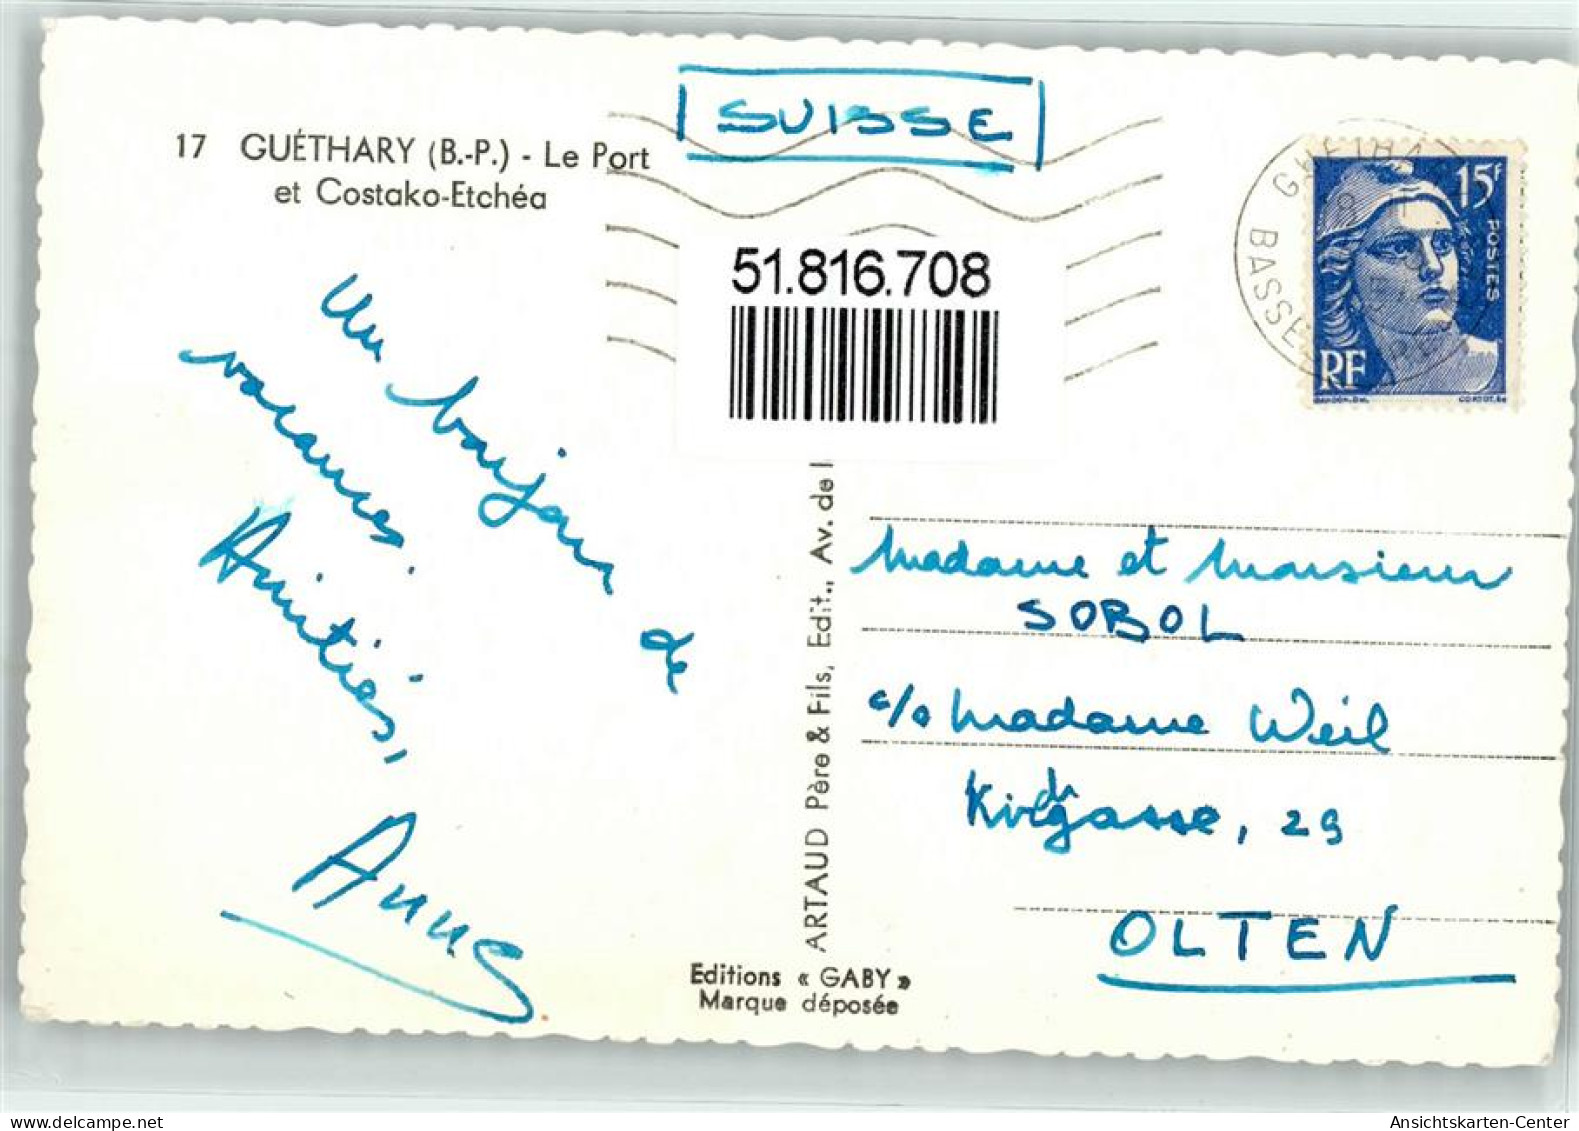 SUISSE
17 GUÉTHARY (B.-P.) - Le Port
et Costako-Etchéa
51.816.708
15F
POSTES
RF
GUETHARY
BASSES
Un bonjour de
vacances
Amitiés,
Anne
ARTAUD Père & Fils, Edit., Av. de l
Editions « GABY »
Marque déposée
Madame et Monsieur
SOBOL
c/o Madame Weil
Kirchgasse, 29
OLTEN
www.delcampe.net
Ansichtskarten-Center